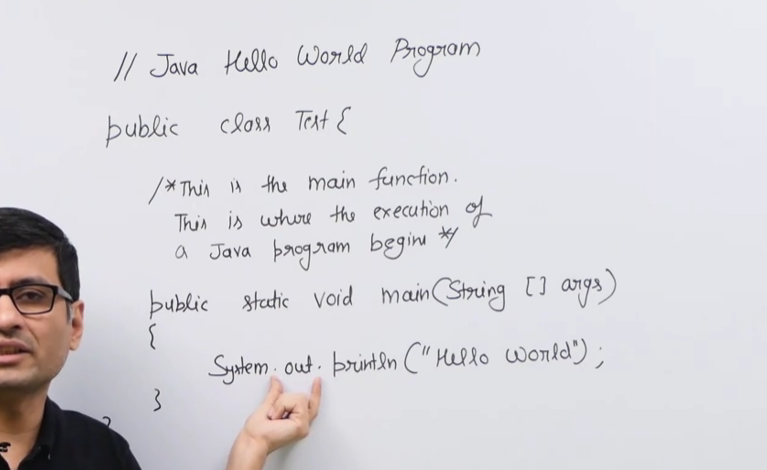 // Java Hello World Program
public class Test {
/* This is the main function.
This is where the execution of
a Java program begins */
public static void main(String [] args)
{
System.out.println("Hello World");
}
}